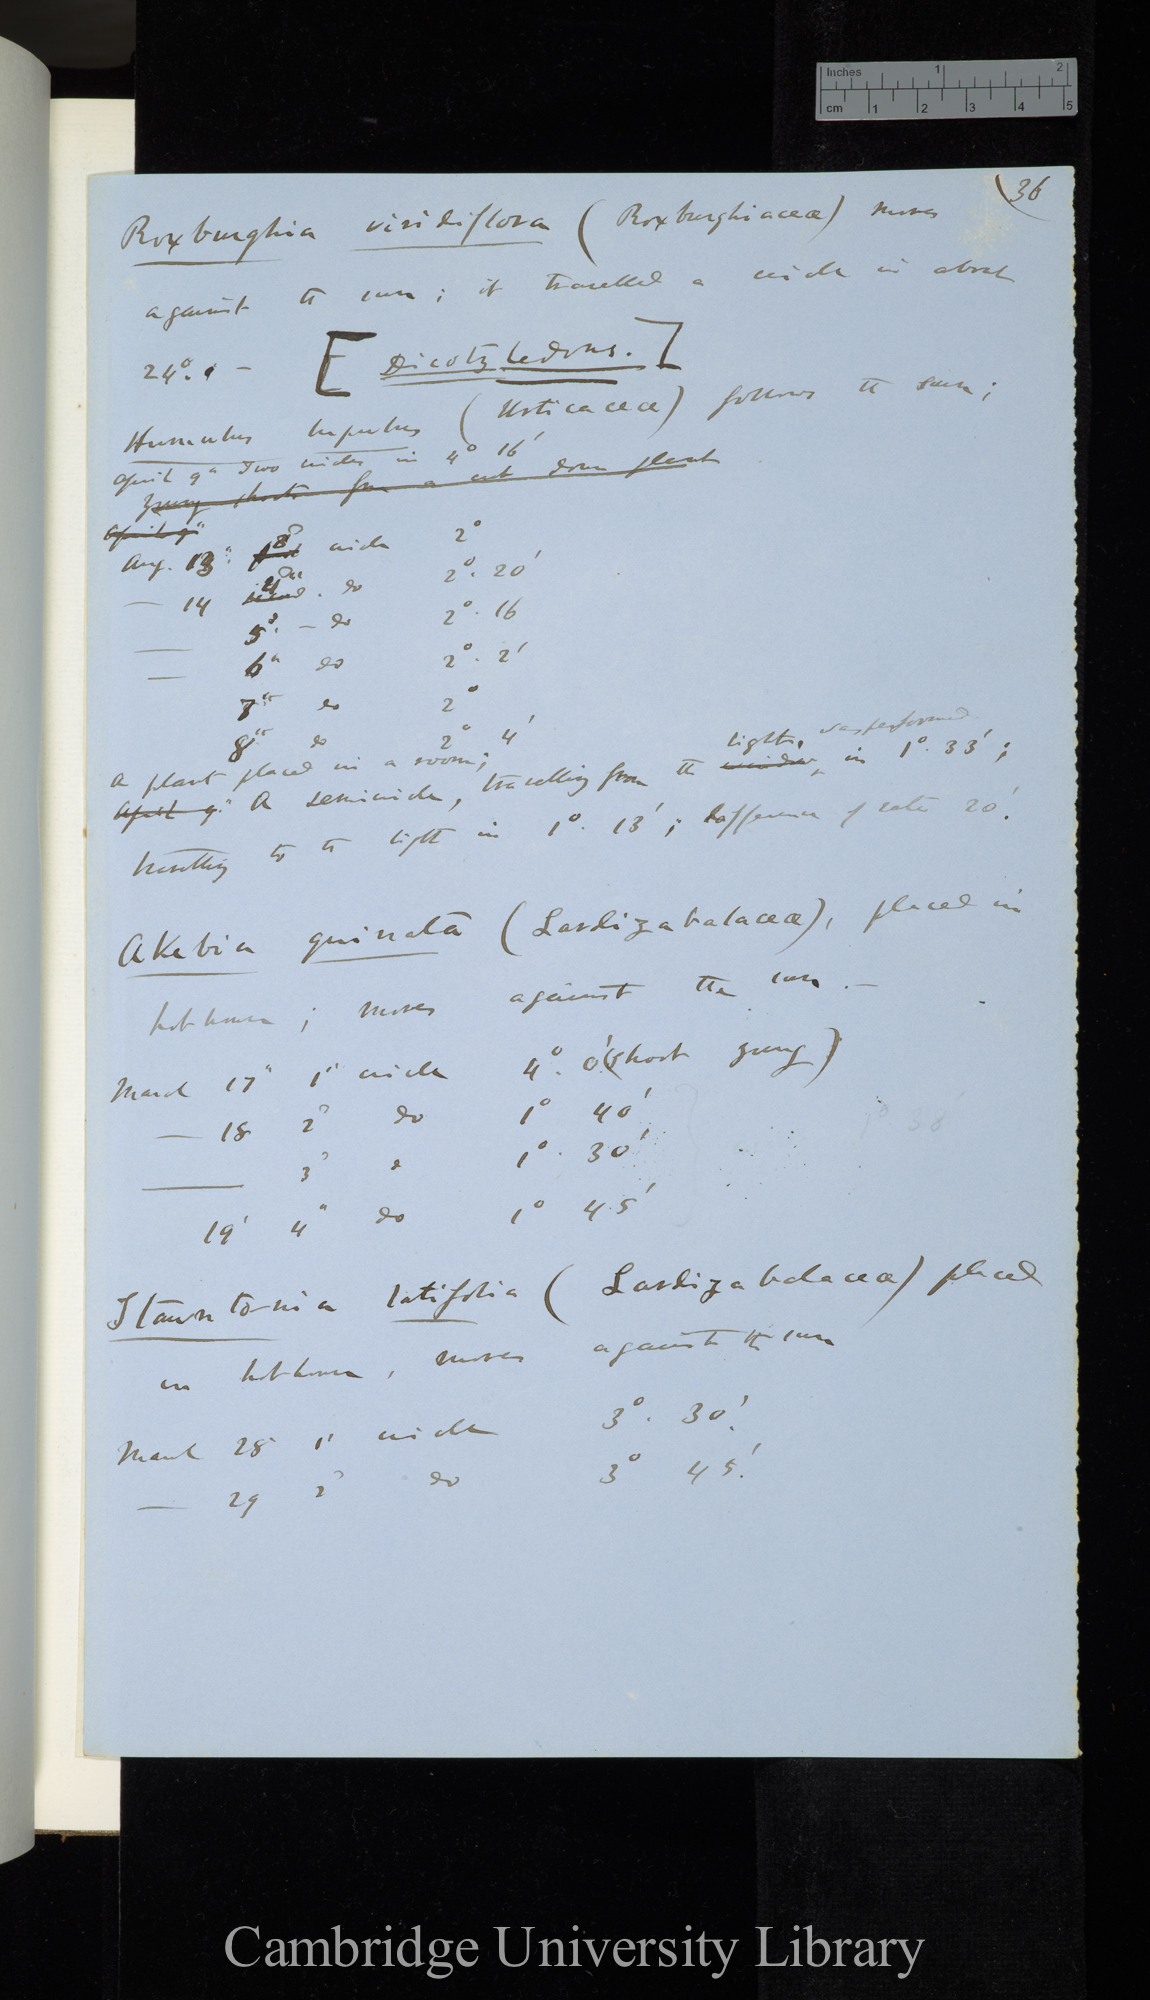 Inches 1 2
cm 1 2 3 4 5
(36
Roxburghia viridiflora (Roxburghiaceæ) moves
against the sun; it travelled a circle in about
24°. —
[Dicotyledons.]
Humulus lupulus (Urticaceæ) follows the sun;
April 9th Two circles in 4° 16'
Young shoots from a cut down plant
April 9th
Aug. 13th 3d circle 2°
— 14 4th do 2°. 20'
— 5th — do 2°. 16
— 6th do 2°. 2'
7th do 2°
8th do 2° 4'
A plant placed in a room;
April 9th A semicircle, travelling from the window light, was performed in 1°. 33';
travelling to the light in 1°. 13'; difference of rate 20'.
Akebia quinata (Lardizabalaceæ), placed in
hot house; moves against the sun. —
March 17th 1st circle 4°. 0' (shoot young)
— 18 2d do 1° 40'
— 3d do 1°. 30'
1° 38'
19' 4th do 1° 45'
Stauntonia latifolia (Lardizabalaceæ) placed
in hot house, moves against the sun
March 28 1st circle 3°. 30'.
— 29 2d do 3° 45'.
Cambridge University Library